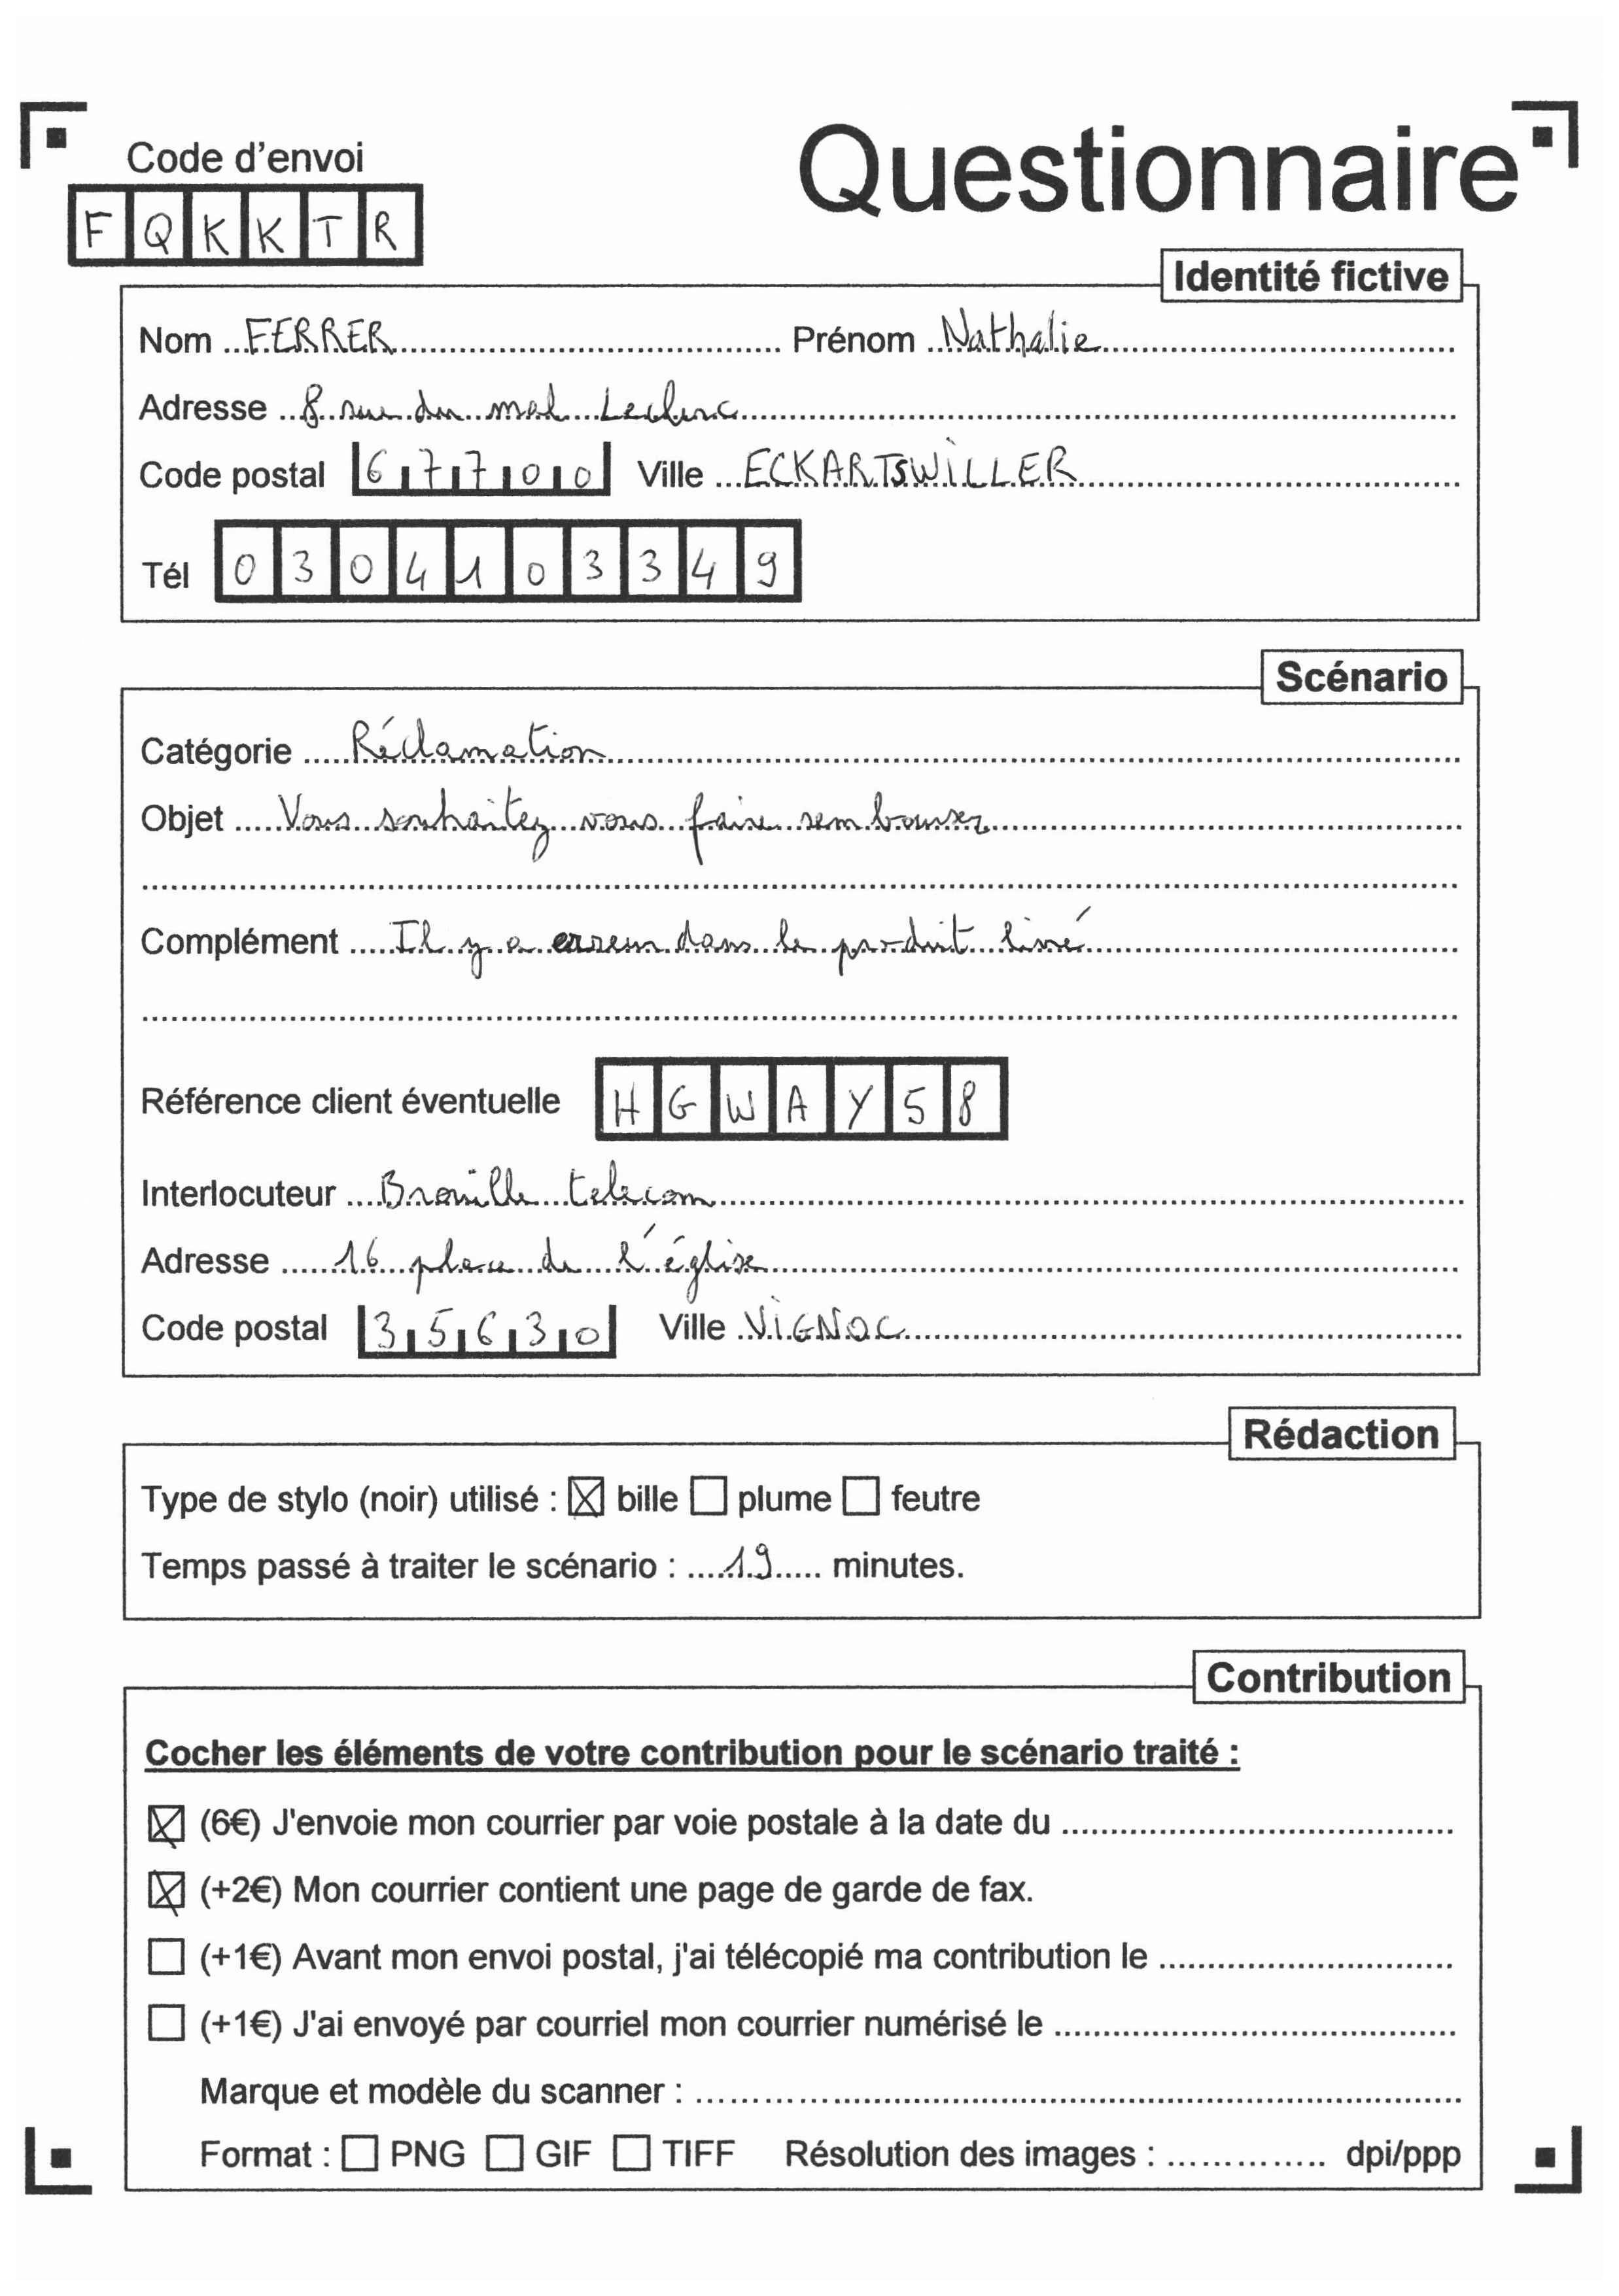 Code d'envoi
Questionnaire
F Q K K T R
Identité fictive
Nom FERRER Prénom Nathalie
Adresse 8 rue du mal Leclerc
Code postal 67700 Ville ECKARTSWILLER
Tél 0304103349
Scénario
Catégorie Réclamation
Objet Vous souhaitez vous faire rembourser
Complément Il y a erreur dans le produit livré
Référence client éventuelle HGWAY58
Interlocuteur Brouille telecom
Adresse 16 place de l'église
Code postal 35630 Ville VIGNOC
Rédaction
Type de stylo (noir) utilisé : ☒ bille ☐ plume ☐ feutre
Temps passé à traiter le scénario : 19 minutes.
Contribution
Cocher les éléments de votre contribution pour le scénario traité :
☒ (6€) J'envoie mon courrier par voie postale à la date du
☒ (+2€) Mon courrier contient une page de garde de fax.
☐ (+1€) Avant mon envoi postal, j'ai télécopié ma contribution le
☐ (+1€) J'ai envoyé par courriel mon courrier numérisé le
Marque et modèle du scanner :
Format : ☐ PNG ☐ GIF ☐ TIFF Résolution des images : dpi/ppp